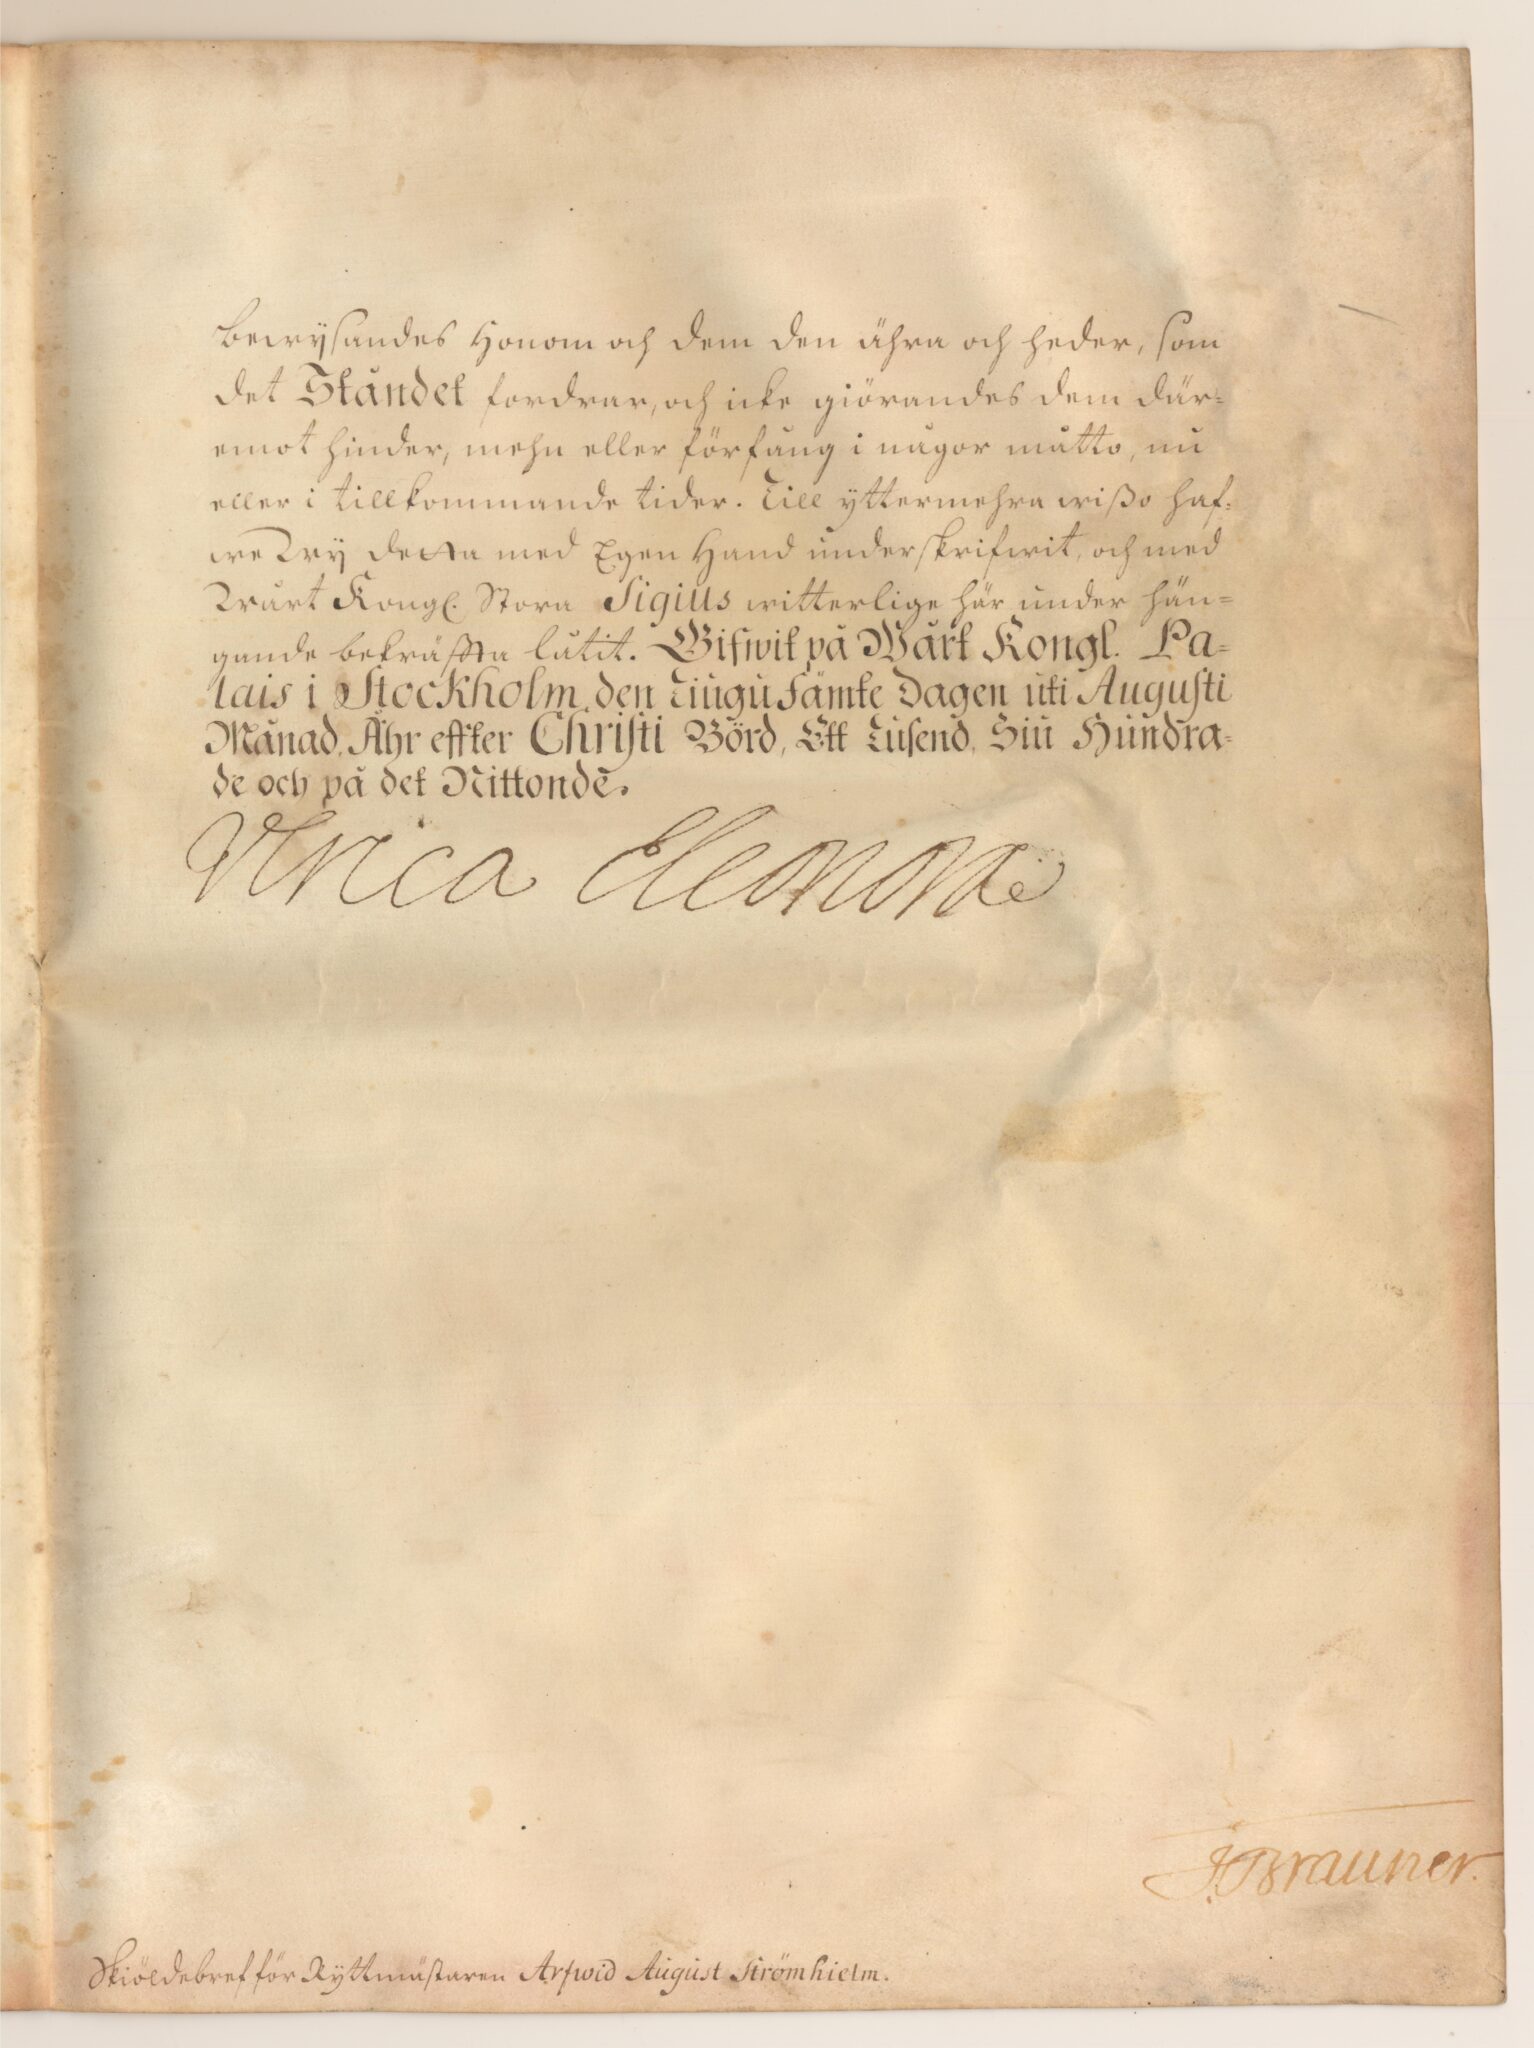 bewysandes Honom och dem den ähra och heder, som
det Ståndet fordrar, och icke giörandes dem där=
emot hinder, mehn eller förfång i någor måtto, nu
eller i tillkommande tider. Till yttermehra wißo haf=
we Wy detta med Egen Hand underskrifwit, och med
Wårt Kongl. Stora Sigills witterlige här under hän=
gande bekräffta låtit. Gifwit på Wårt Kongl. Pa=
lais i Stockholm, den Tiugu Fämte Dagen uti Augusti
Månad, Åhr effter Christi Börd, Ett Tusend, Siu Hundra=
de och på det Nittonde.
Vlrica Eleonora
J. Brauner.
Skiöldebref för Ryttmästaren Arfwid August Strömhielm.